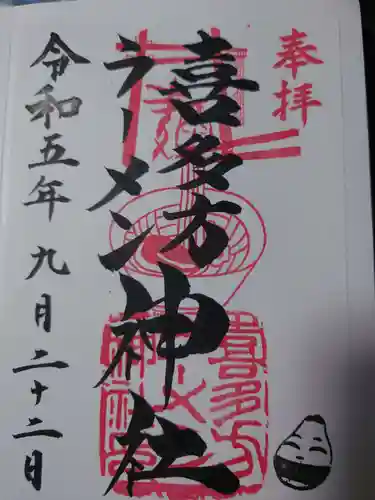 奉拝
喜多方
ラーメン神社
令和五年九月二十二日
喜多方